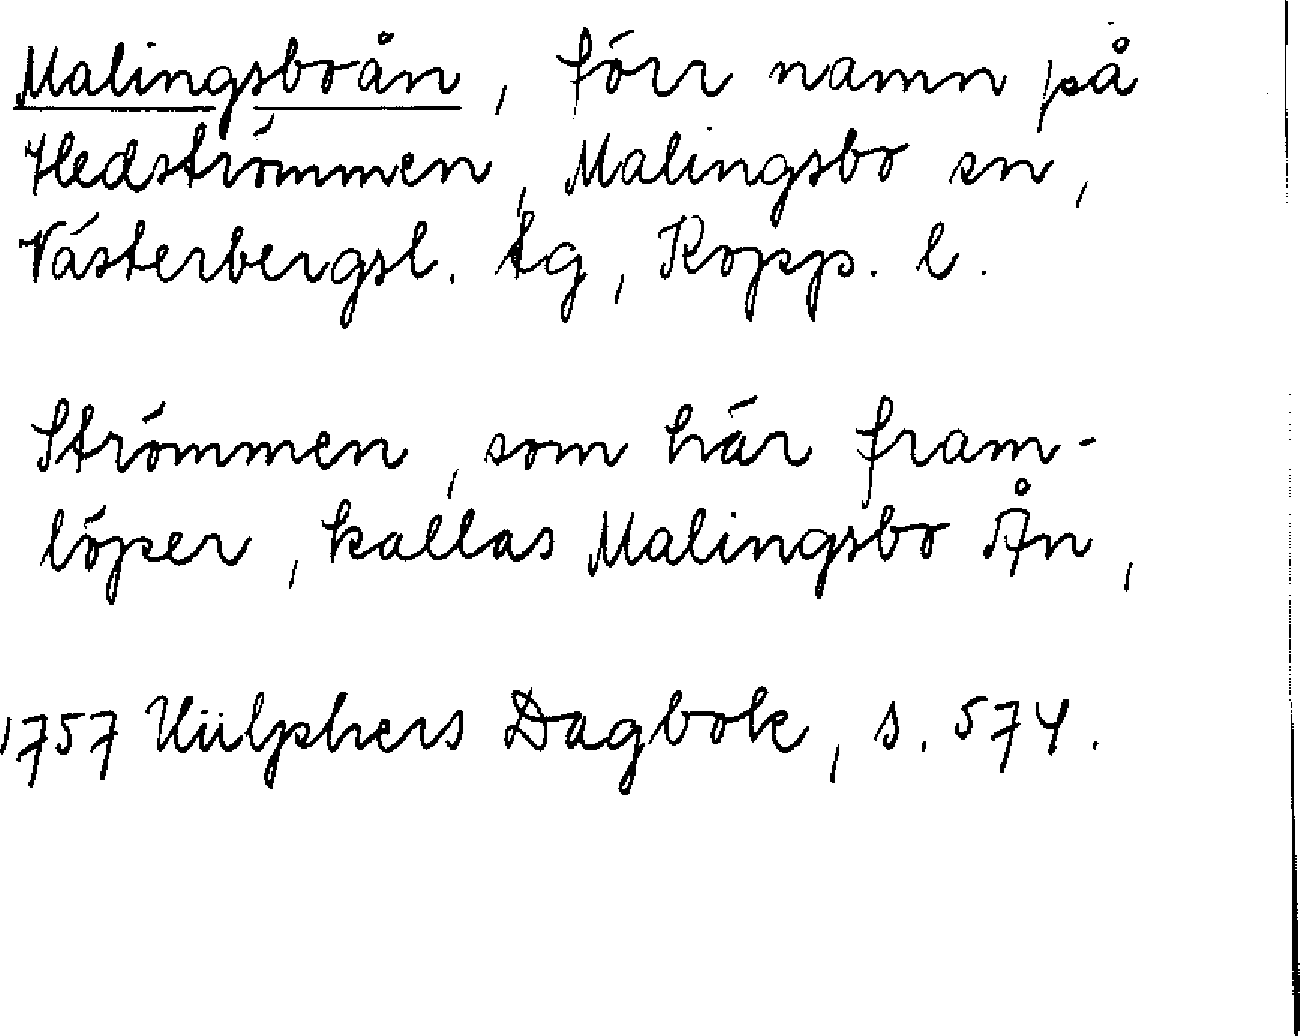 Malingsboån, förr namn på
Hedströmmen, Malingsbo sn,
Västerbergsl. tg, Kopp. l.
Strömmen, som här fram-
löper, kallas Malingsbo Ån,
1757 Hülphers Dagbok, s. 574.